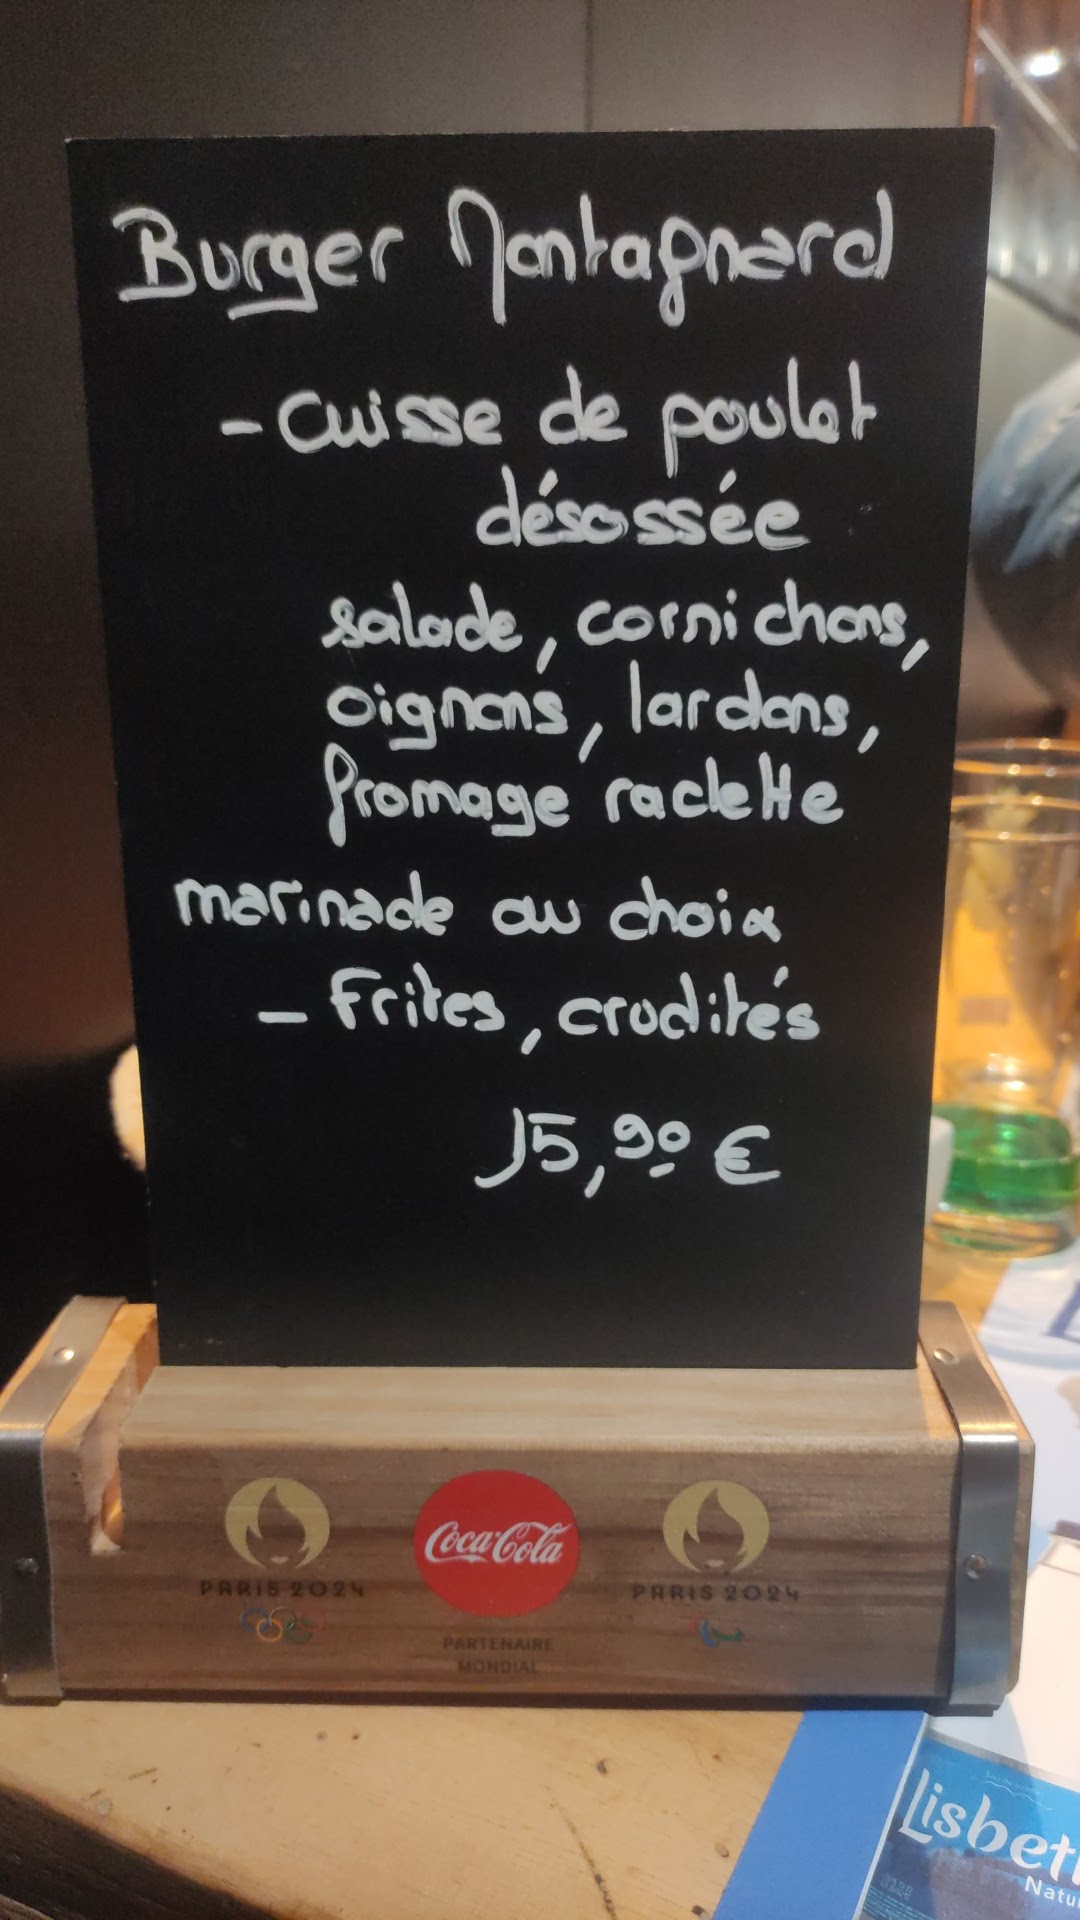 Burger Montagnard
- cuisse de poulet
désossée
salade, cornichons,
oignons, lardons,
fromage raclette
marinade au choix
- Frites, crudités
15,90 €
PARIS 2024
Coca-Cola
PARIS 2024
PARTENAIRE
MONDIAL